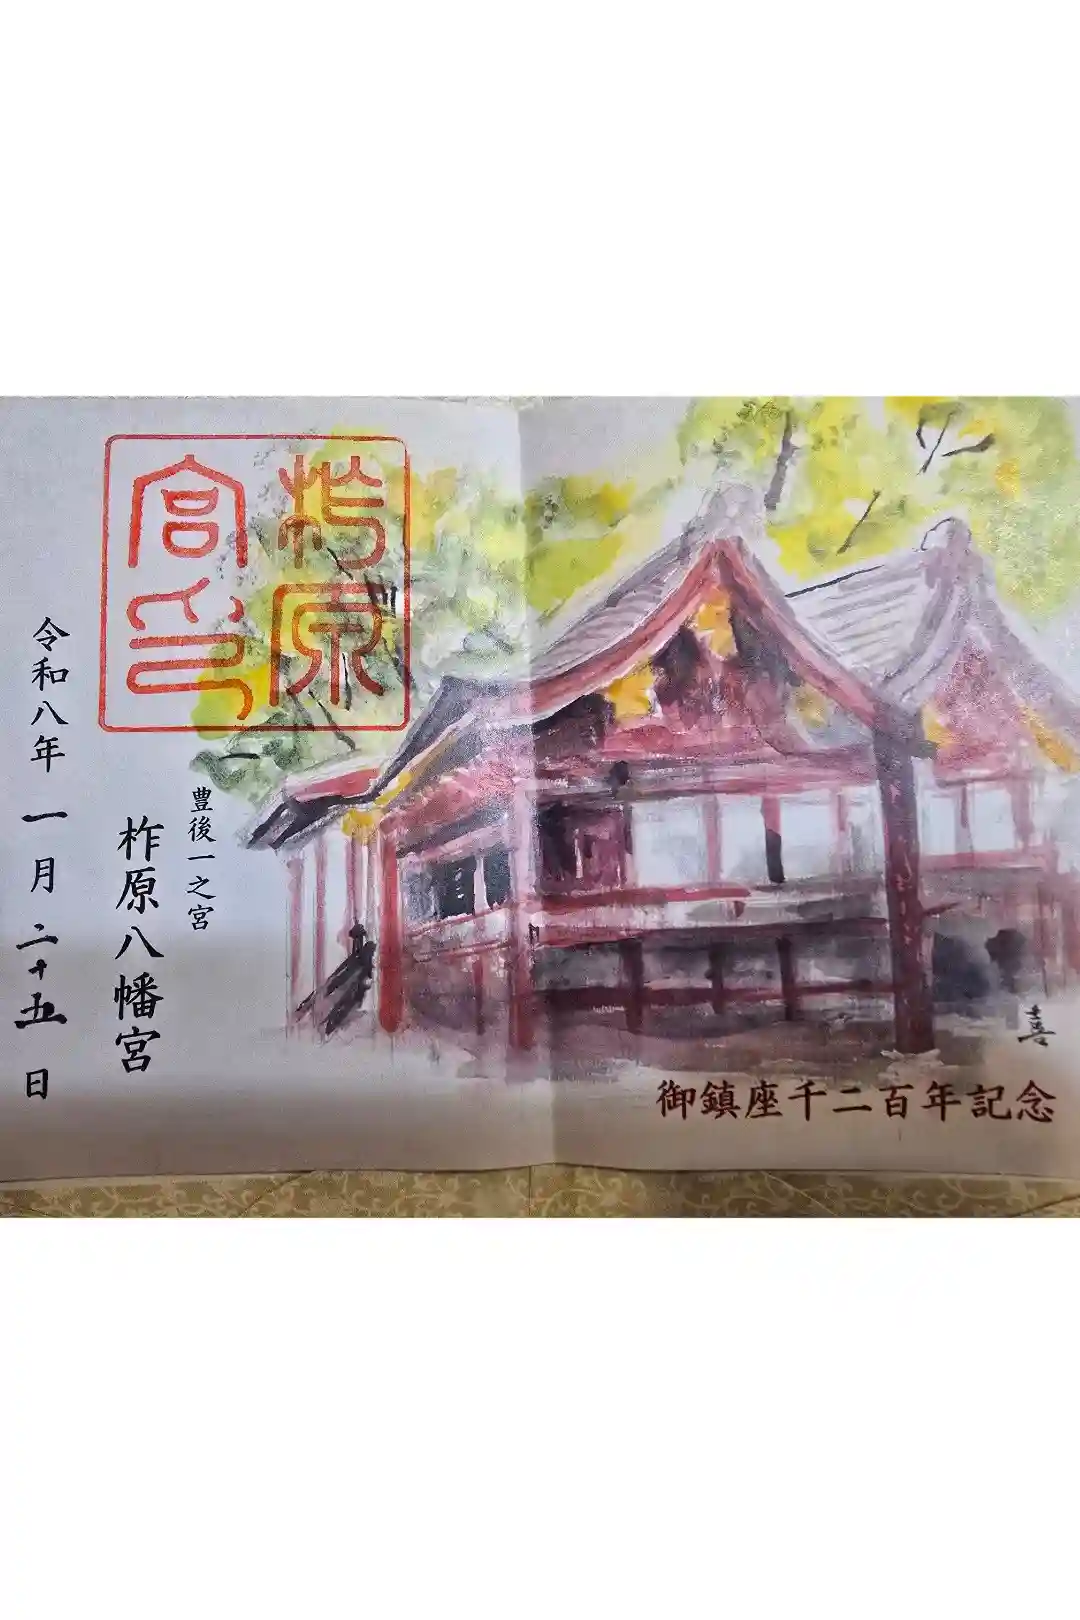 柞原
宮印
豊後一之宮
柞原八幡宮
令和八年 一月二十五日
喜
御鎮座千二百年記念